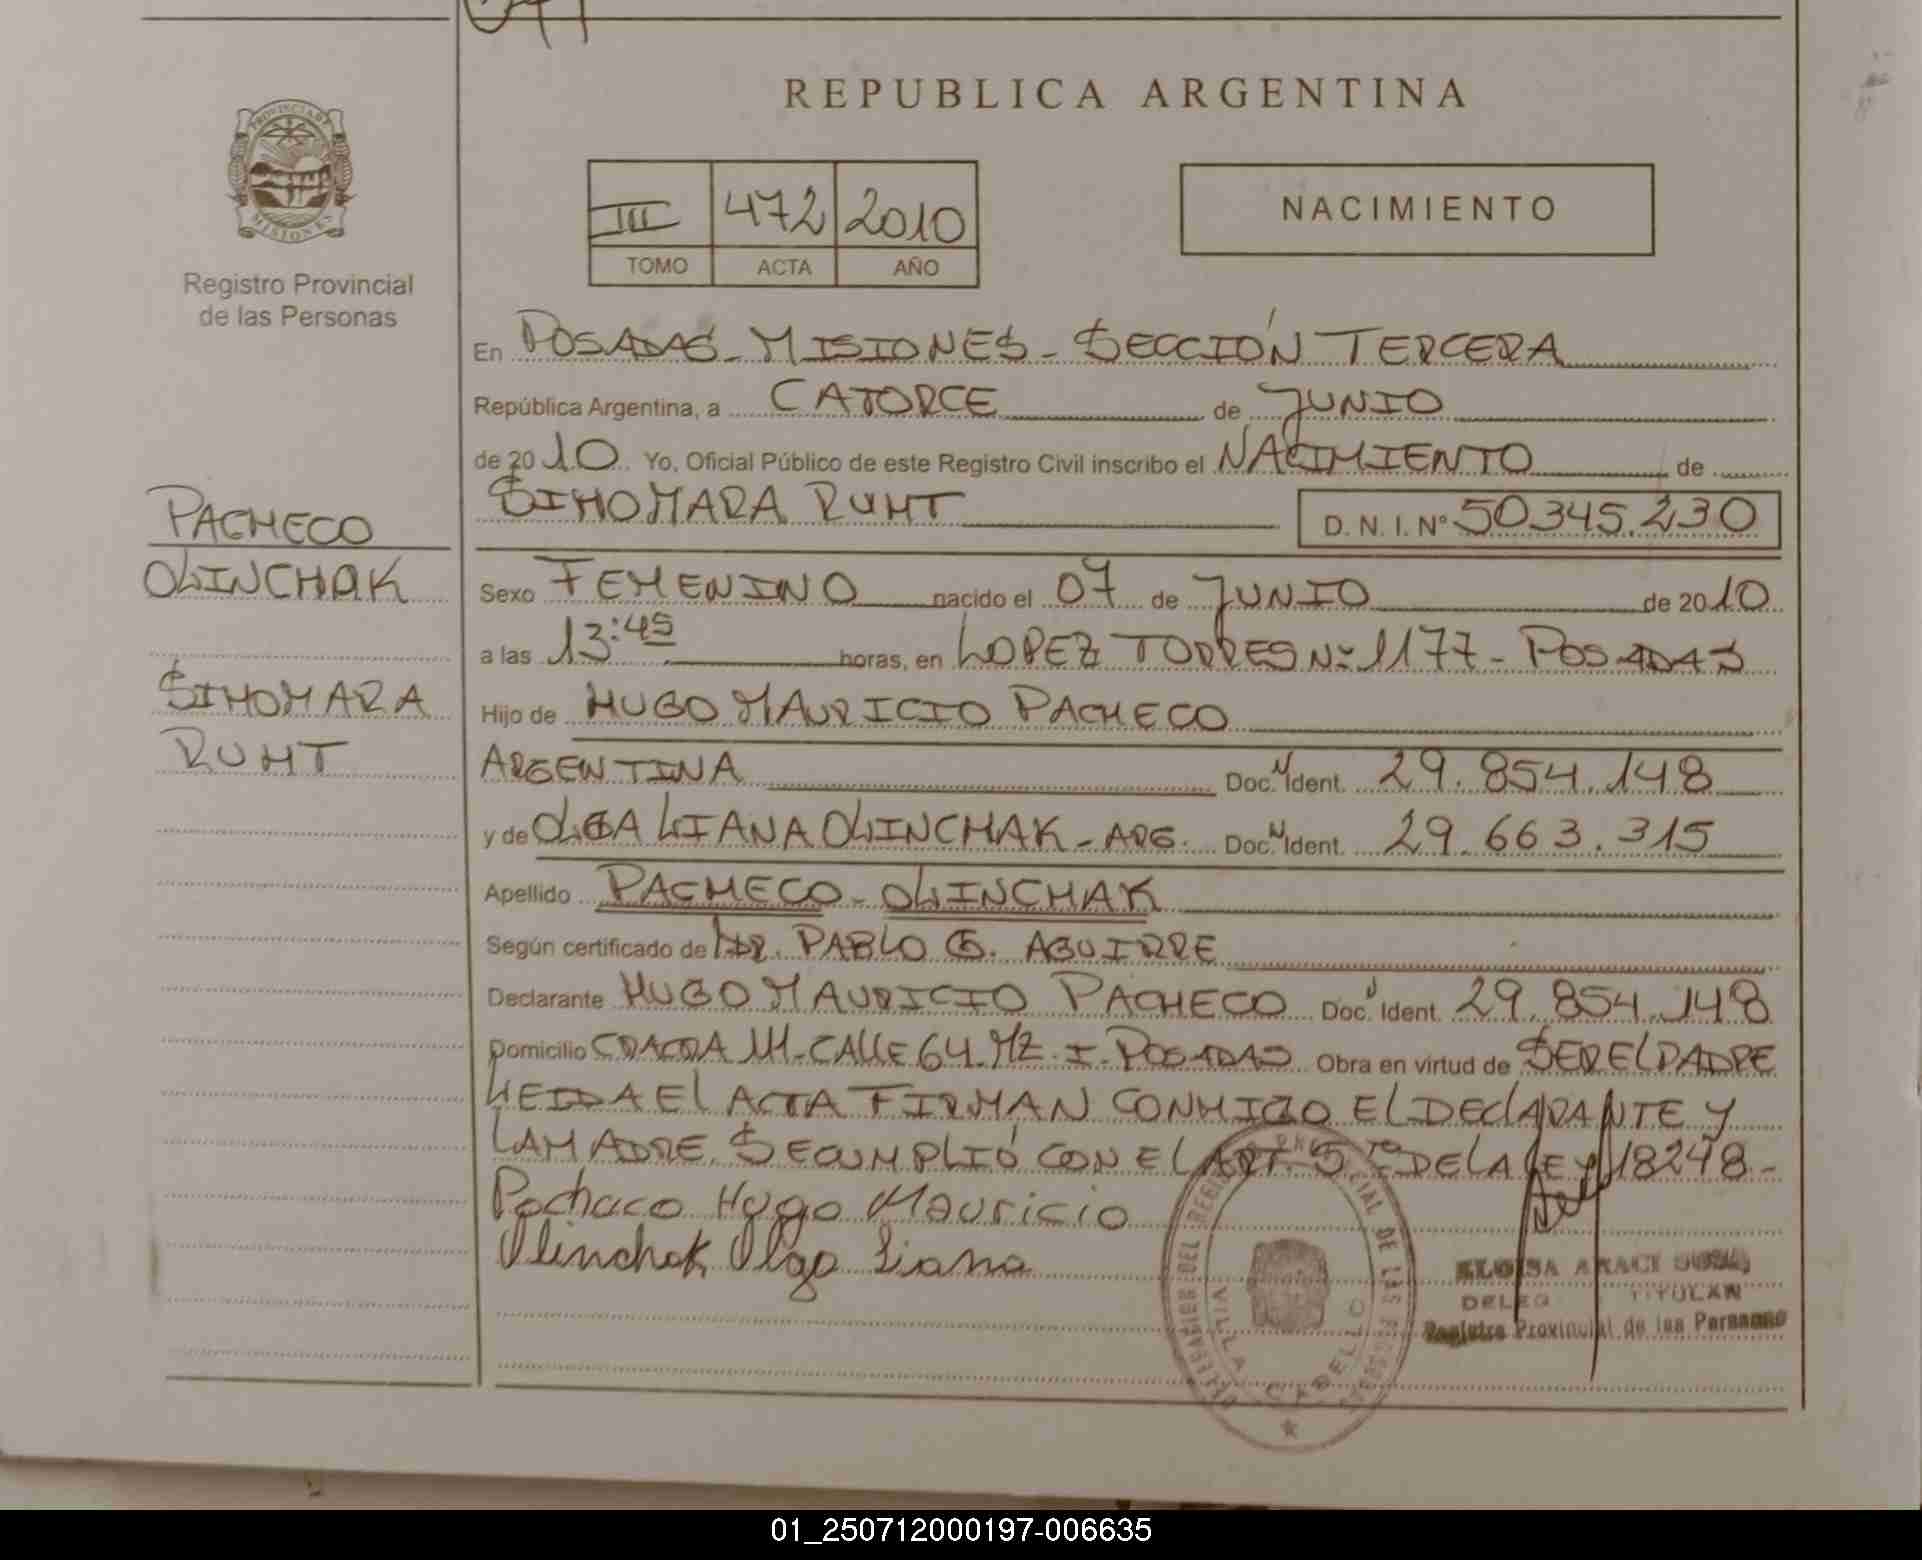 REPUBLICA ARGENTINA
PROVINCIA DE
MISIONES
Registro Provincial
de las Personas
III 472 2010
TOMO ACTA AÑO
NACIMIENTO
En POSADAS - MISIONES - SECCIÓN TERCERA
República Argentina, a CATORCE de JUNIO
de 2010 Yo, Oficial Público de este Registro Civil inscribo el NACIMIENTO de
SIHOMARA RUHT D. N. I. Nº 50.345.230
PACHECO
OLINCHAK
SIHOMARA
RUHT
Sexo FEMENINO nacido el 07 de JUNIO de 2010
a las 13:45 horas, en LOPEZ TORRES Nº 1177 - POSADAS
Hijo de HUGO MAURICIO PACHECO
ARGENTINA Doc. Ident. 29.854.148
y de OLGA LIANA OLINCHAK - ARG. Doc. Ident. 29.663.315
Apellido PACHECO - OLINCHAK
Según certificado de DR. PABLO G. AGUIRRE
Declarante HUGO MAURICIO PACHECO Doc. Ident. 29.854.148
Domicilio CHACRA 111 - CALLE 64 - MZ - I - POSADAS Obra en virtud de SER EL PADRE
LEIDA EL ACTA FIRMAN CONMIGO EL DECLARANTE Y
LA MADRE. SE CUMPLIÓ CON EL ART. 5to DE LA LEY 18248 -
Pacheco Hugo Mauricio
Olinchak Olga Liana
REGISTRO PROVINCIAL DE LAS PERSONAS
VILLA CABELLO
ELOISA ARACI
TITULAR
Registro Provincial de las Personas
01_250712000197-006635